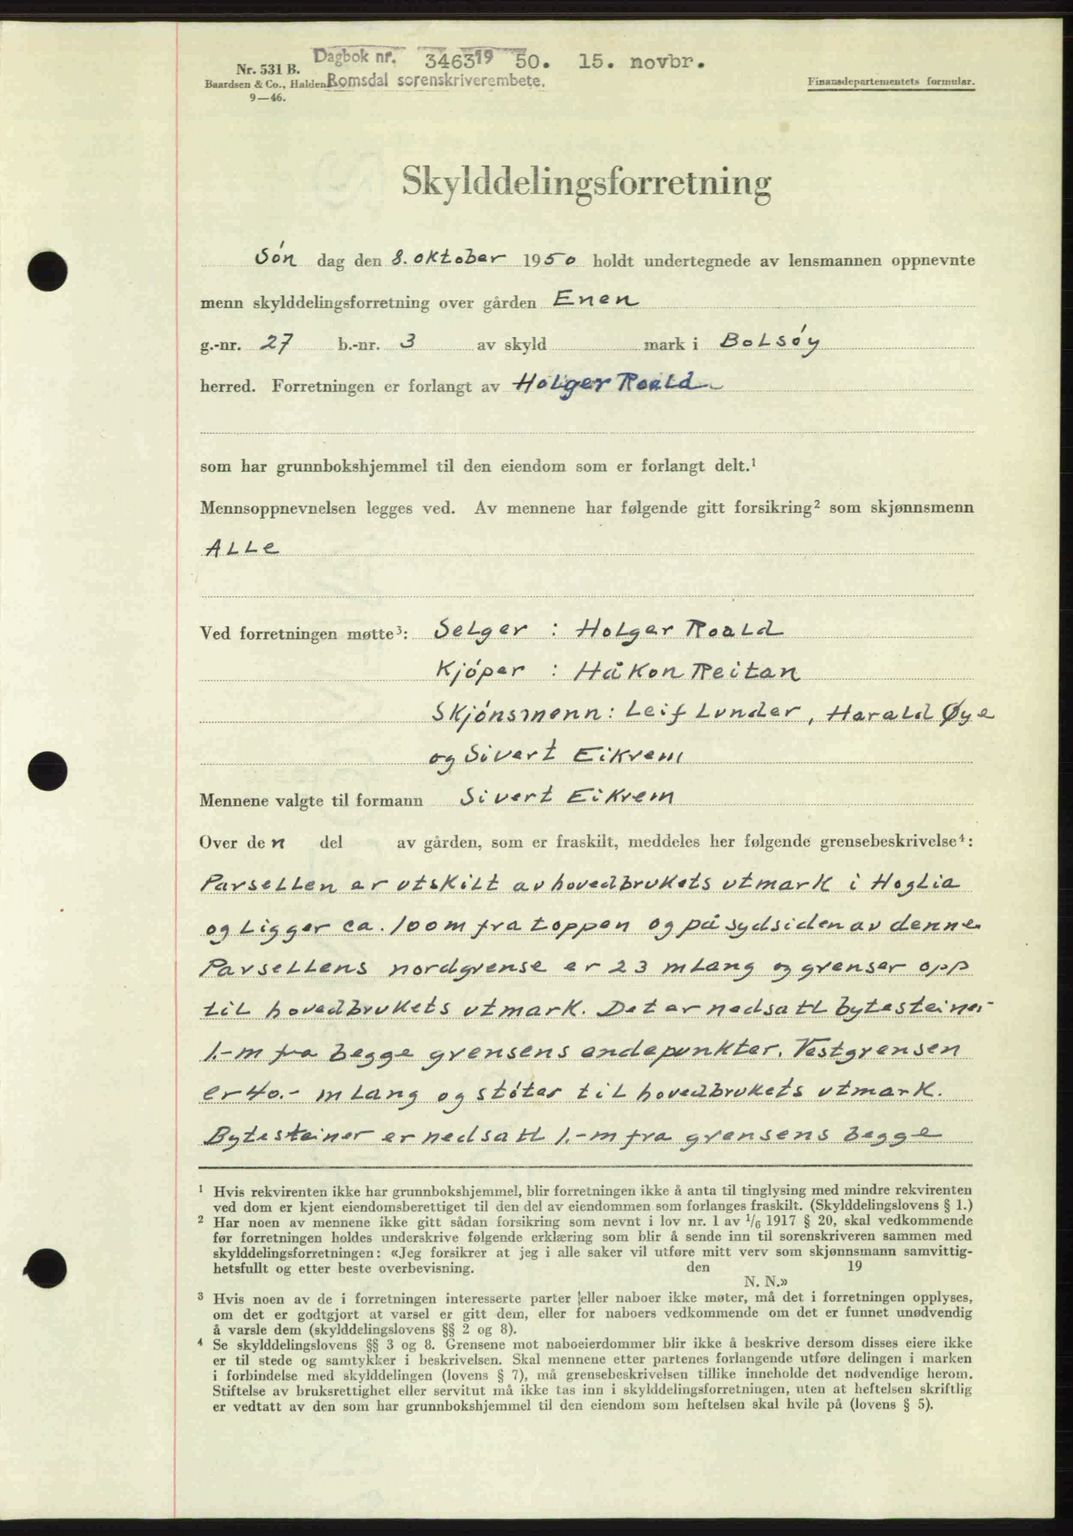 Dagbok nr. 3463 19 50. 15. novbr.
Nr. 531 B.
Baardsen & Co., Halden
Romsdal sorenskriverembete.
9—46.
Finansdepartementets formular.
Skylddelingsforretning
Søn dag den 8. oktober 1950 holdt undertegnede av lensmannen oppnevnte
menn skylddelingsforretning over gården Enen
g.-nr. 27 b.-nr. 3 av skyld mark i Bolsøy
herred. Forretningen er forlangt av Holger Roald
som har grunnbokshjemmel til den eiendom som er forlangt delt.¹
Mennsoppnevnelsen legges ved. Av mennene har følgende gitt forsikring² som skjønnsmenn
Alle
Ved forretningen møtte³: Selger : Holger Roald
Kjøper : Håkon Reitan
Skjønsmenn: Leif Lunder, Harald Øye
og Sivert Eikrem
Mennene valgte til formann Sivert Eikrem
Over den del av gården, som er fraskilt, meddeles her følgende grensebeskrivelse⁴:
Parsellen er utskilt av hovedbrukets utmark i Hoglia
og ligger ca. 100 m fra toppen og på sydsiden av denne.
Parsellens nordgrense er 23 m lang og grenser opp
til hovedbrukets utmark. Det er nedsatt bytesteiner
1.-m fra begge grensens endepunkter. Vestgrensen
er 40.- m lang og støter til hovedbrukets utmark.
Bytesteiner er nedsatt 1.-m fra grensens begge
¹ Hvis rekvirenten ikke har grunnbokshjemmel, blir forretningen ikke å anta til tinglysing med mindre rekvirenten
ved dom er kjent eiendomsberettiget til den del av eiendommen som forlanges fraskilt. (Skylddelingslovens § 1.)
² Har noen av mennene ikke gitt sådan forsikring som nevnt i lov nr. 1 av 1/6 1917 § 20, skal vedkommende
før forretningen holdes underskrive følgende erklæring som blir å sende inn til sorenskriveren sammen med
skylddelingsforretningen: «Jeg forsikrer at jeg i alle saker vil utføre mitt verv som skjønnsmann samvittig-
hetsfullt og etter beste overbevisning. den 19
N. N.»
³ Hvis noen av de i forretningen interesserte parter eller naboer ikke møter, må det i forretningen opplyses,
om det er godtgjort at varsel er gitt dem, eller for naboers vedkommende om det er funnet unødvendig
å varsle dem (skylddelingslovens §§ 2 og 8).
⁴ Se skylddelingslovens §§ 3 og 8. Grensene mot naboeierdommer blir ikke å beskrive dersom disses eiere ikke
er til stede og samtykker i beskrivelsen. Skal mennene etter partenes forlangende utføre delingen i marken
i forbindelse med skylddelingen (lovens § 7), må grensebeskrivelsen tillike inneholde det nødvendige herom.
Stiftelse av bruksrettighet eller servitut må ikke tas inn i skylddelingsforretningen, uten at heftelsen skriftlig
er vedtatt av den som har grunnbokshjemmel til den eiendom som heftelsen skal hvile på (lovens § 5).